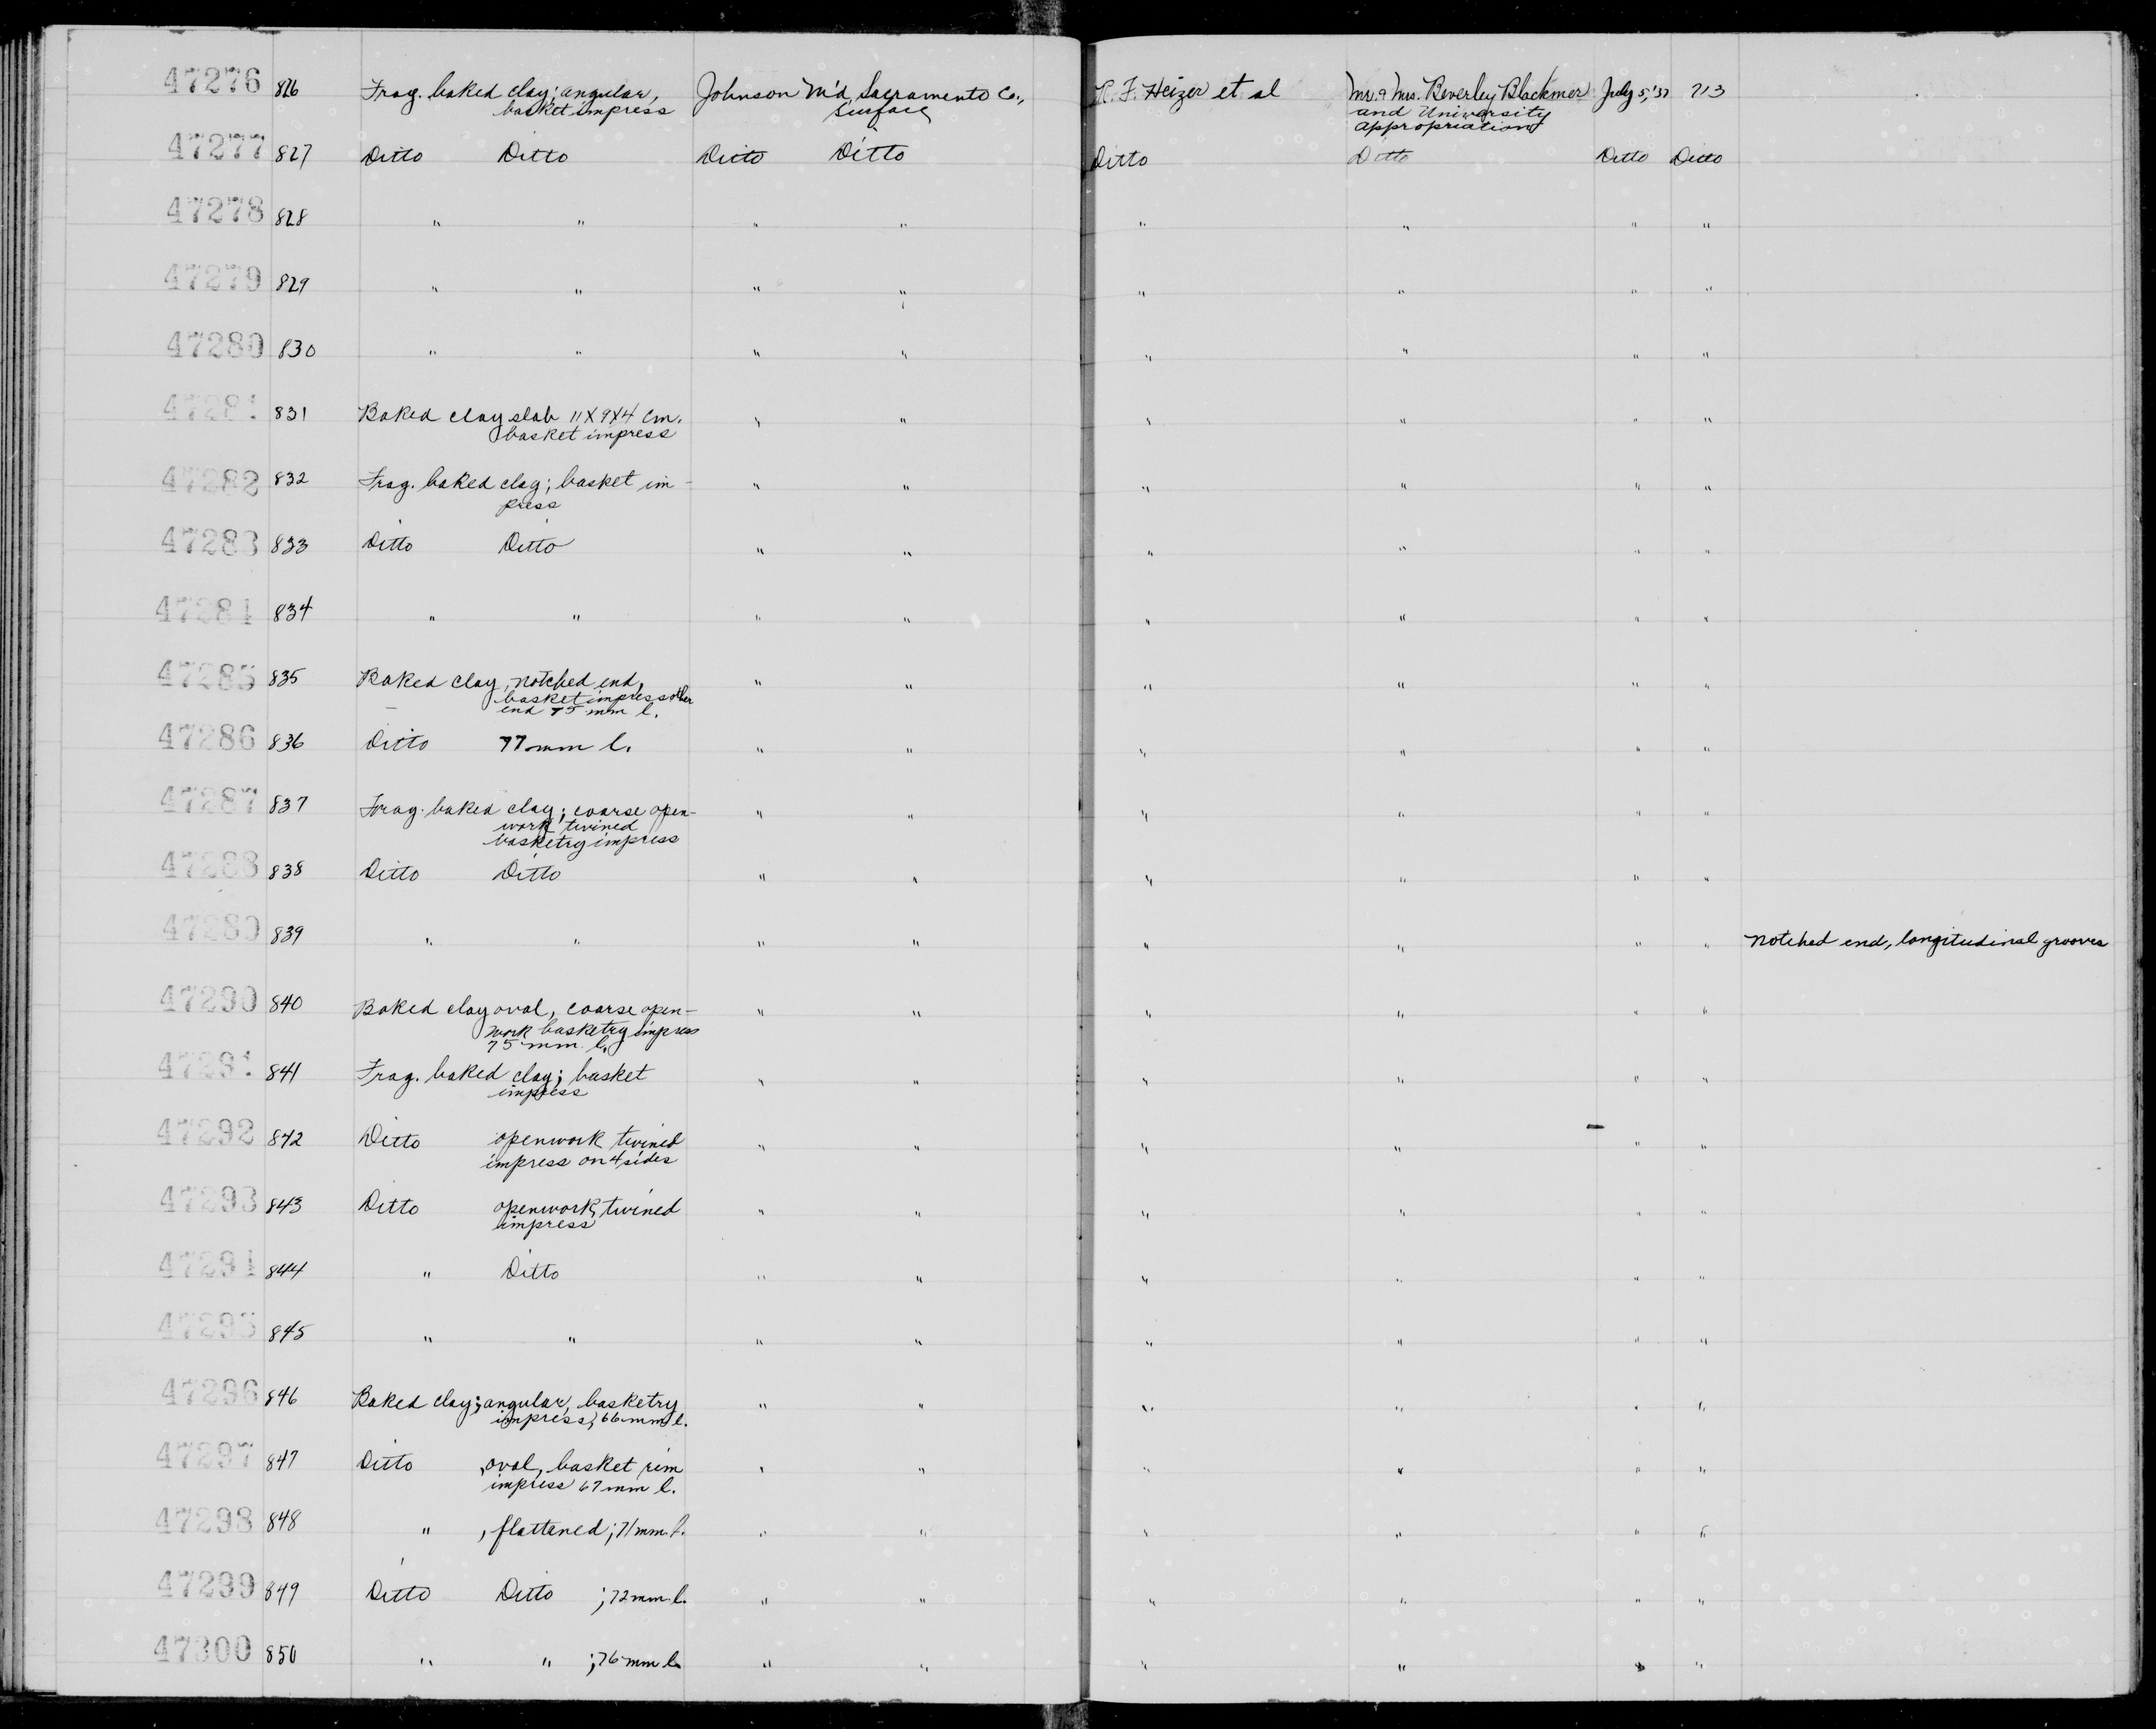 47276 826 Frag. baked clay; angular, Johnson M'd, Sacramento Co., R. F. Heizer et al Mr. & Mrs. Beverley Blackmer July 5, '37 713
basket impress surface and University
appropriation
47277 827 Ditto Ditto Ditto Ditto Ditto Ditto Ditto Ditto
47278 828 " " " " " " " "
47279 829 " " " " " " " "
47280 830 " " " " " " " "
47281 831 Baked clay slab 11X9X4 cm. " " " " " "
basket impress
47282 832 Frag. baked clay; basket im- " " " " " "
press
47283 833 Ditto Ditto " " " " " "
47284 834 " " " " " " " "
47285 835 Baked clay, notched end, " " " " " "
basket impress other
end 75 mm l.
47286 836 Ditto 77 mm l. " " " " " "
47287 837 Frag. baked clay; coarse open- " " " " " "
work twined
basketry impress
47288 838 Ditto Ditto " " " " " "
47289 839 " " " " " " " " notched end, longitudinal grooves
47290 840 Baked clay oval, coarse open- " " " " " "
work basketry impress
75 mm l.
47291 841 Frag. baked clay; basket " " " " " "
impress
47292 842 Ditto openwork twined " " " " " "
impress on 4 sides
47293 843 Ditto openwork, twined " " " " " "
impress
47294 844 " Ditto " " " " " "
47295 845 " " " " " " " "
47296 846 Baked clay; angular, basketry " " " " " "
impress; 66 mm l.
47297 847 Ditto , oval, basket rim " " " " " "
impress 67 mm l.
47298 848 " , flattened; 71 mm. l. " " " " " "
47299 849 Ditto Ditto ; 72 mm. l. " " " " " "
47300 850 " " ; 76 mm l. " " " " " "